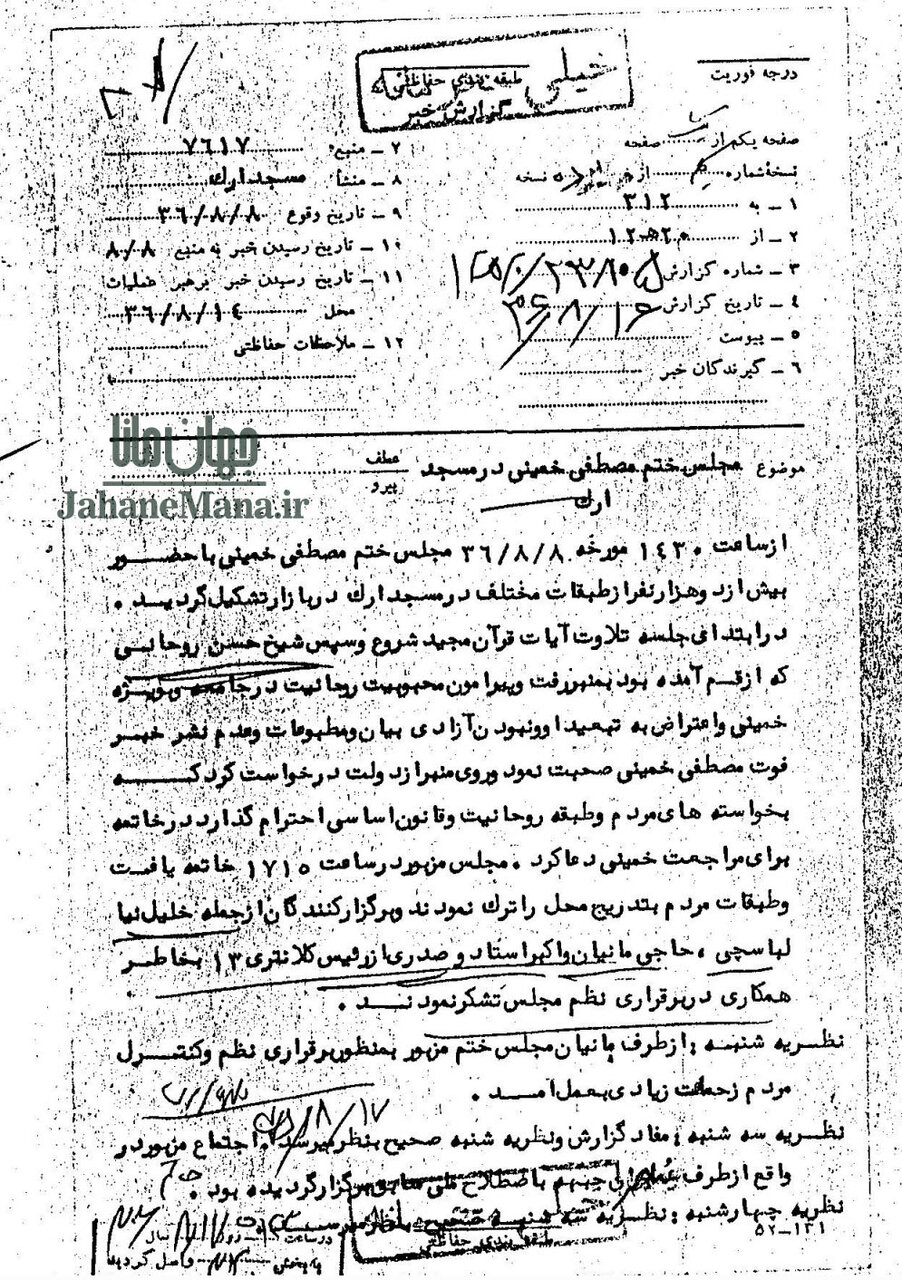 درجه فوریت
خیلی محرمانه
طبقه بندی حفاظتی
گزارش خبر
صفحه یکم از یک صفحه
نسخهٔ شماره از نسخه
۱ - به ۳۱۲
۲ - از ۲۰ ه ۱۲
۳ - شماره گزارش
۴ - تاریخ گزارش ۳۶/۸/۱۶
۵ - پیوست
۶ - گیرندگان خبر
۷ - منبع ۷۶۱۷
۸ - منشأ مسجد ارك
۹ - تاریخ وقوع ۳۶/۸/۸
۱۰ - تاریخ رسیدن خبر به منبع ۸/۸
۱۱ - تاریخ رسیدن خبر برهبر عملیات
محل ۳۶/۸/۱۴
۱۲ - ملاحظات حفاظتی
جهان مانا
JahaneMana.ir
موضوع مجلس ختم مصطفی خمینی در مسجد
ارك
عطف
پیرو
از ساعت ۱۴۳۰ مورخه ۳۶/۸/۸ مجلس ختم مصطفی خمینی با حضور
بیش از دو هزار نفر از طبقات مختلف در مسجد ارك در بازار تشکیل گردید .
در ابتدای جلسه تلاوت آیات قرآن مجید شروع و سپس شیخ حسن روحانی
که از قم آمده بود بمنبر رفت و پیرامون محبوبیت روحانیت در جامعه و بویژه
خمینی و اعتراض به تبعید او و نبودن آزادی بیان و مطبوعات و عدم نشر خبر
فوت مصطفی خمینی صحبت نمود و روی منبر از دولت درخواست کرد که
بخواسته های مردم و طبقه روحانیت و قانون اساسی احترام گذارد در خاتمه
برای مراجعت خمینی دعا کرد . مجلس مزبور در ساعت ۱۷۱۵ خاتمه یافت
و طبقات مردم بتدریج محل را ترك نمودند و برگزارکنندگان از جمله خلیل نیا
لباسچی ، حاجی مانیان و اکبر استاد و صدری از رئیس کلانتری ۱۳ بخاطر
همکاری در برقراری نظم مجلس تشکر نمودند .
نظریه شنبه : از طرف بانیان مجلس ختم مزبور بمنظور برقراری نظم و کنترل
مردم زحمات زیادی بعمل آمد .
نظریه سه شنبه : مفاد گزارش و نظریه شنبه صحیح بنظر میرسد و اجتماع مزبور در
واقع از طرف جبهه باصطلاح ملی سابق برگزار گردیده بود .
نظریه چهارشنبه : نظریه سه شنبه صحیح بنظر میرسد
۸/۱۷
طبقه بندی حفاظتی
در ساعت روز سال
به بخش واصل گردید
۵۲-۱۳۱